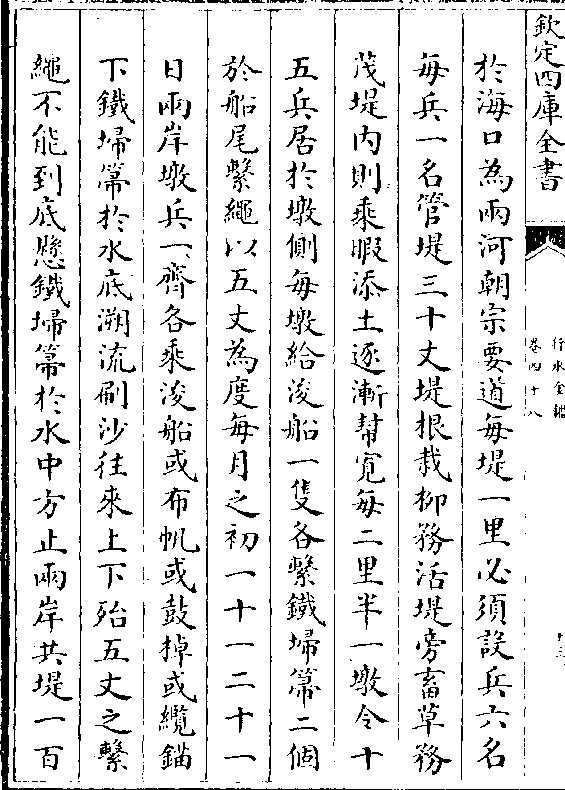 欽定四庫全書
行水金鑑
卷四十八
十三
於海口為兩河朝宗要道每堤一里必須設兵六名
每兵一名管堤三十丈堤根栽柳務活堤旁畜草務
茂堤内則乘暇添土逐漸幇寛每二里半一墩令十
五兵居於墩側每墩給浚船一隻各繫鐵埽箒二個
於船尾繫繩以五丈為度每月之初一十一二十一
日兩岸墩兵一齊各乘浚船或布帆或鼓掉或纜錨
下鐵埽箒於水底溯流刷沙往來上下殆五丈之繫
繩不能到底懸鐵埽箒於水中方止兩岸共堤一百